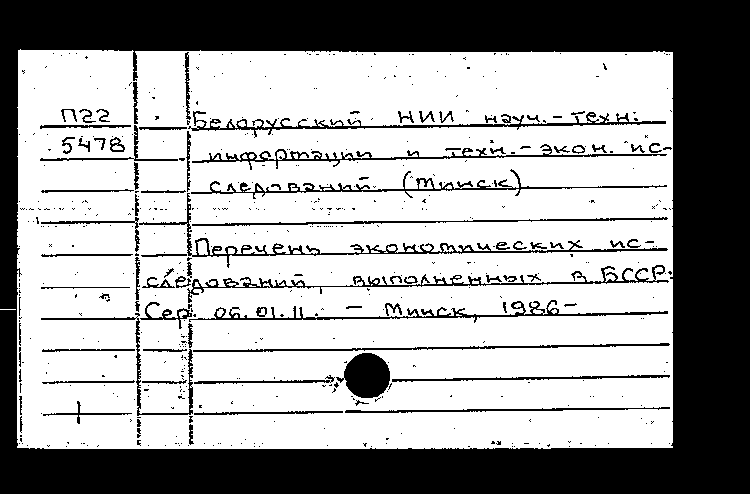 П22
5478
Белорусский НИИ науч.-техн.
информации и техн.-экон. ис-
следований (Минск)
Перечень экономических ис-
следований, выполненных в БССР.
Сер. 06.01.11. - Минск, 1986-